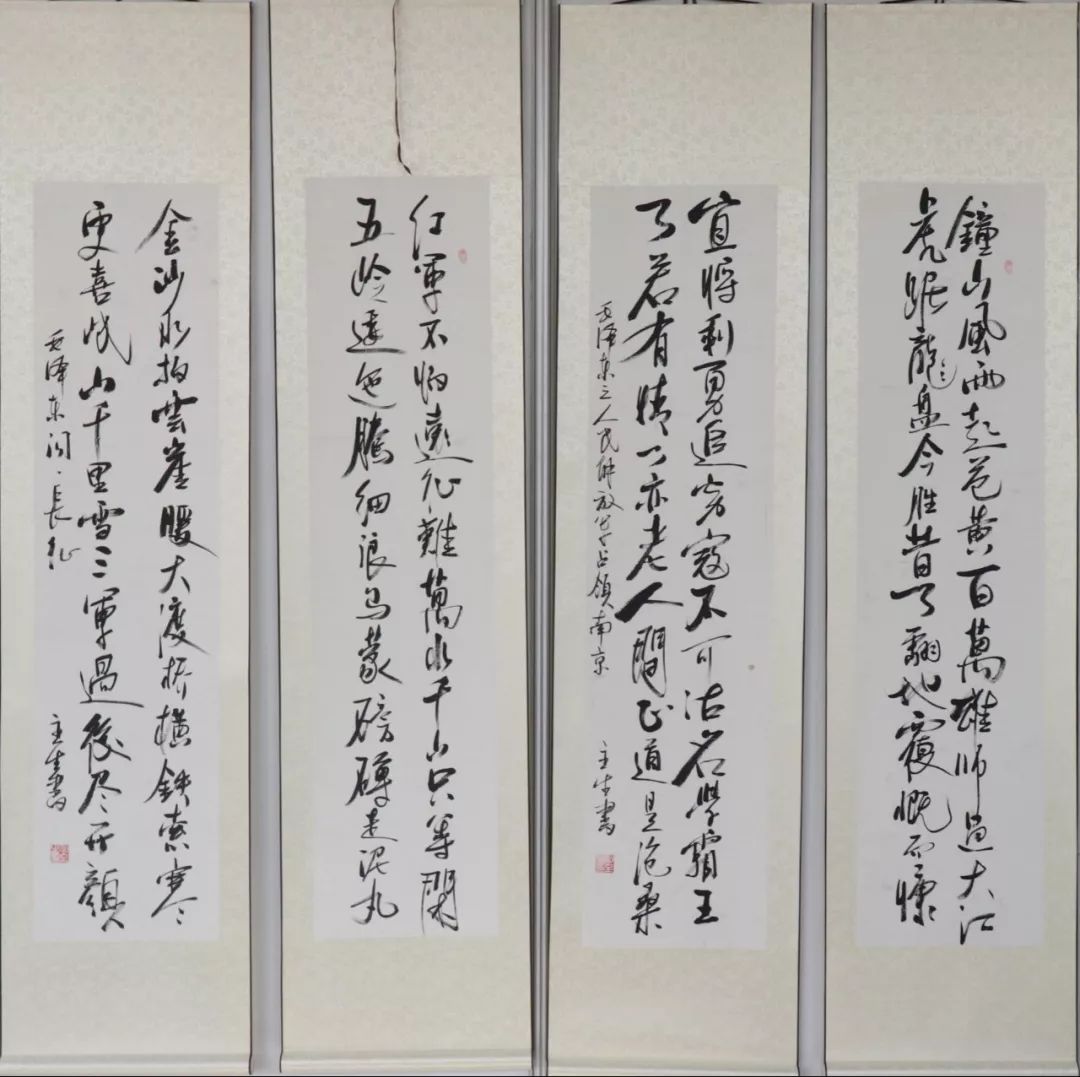 鐘山風雨起苍黄百萬雄师過大江
虎踞龍盘今胜昔天翻地覆慨而慷
宜將剩勇追穷寇不可沽名學霸王
天若有情天亦老人間正道是沧桑
毛泽东之人民解放军占领南京
主生書
红軍不怕遠征難萬水千山只等閑
五岭逶迤腾细浪乌蒙磅礴走泥丸
金沙水拍雲崖暖大渡桥横铁索寒
更喜岷山千里雪三軍過後尽开顏
毛泽东词·長征
主生書